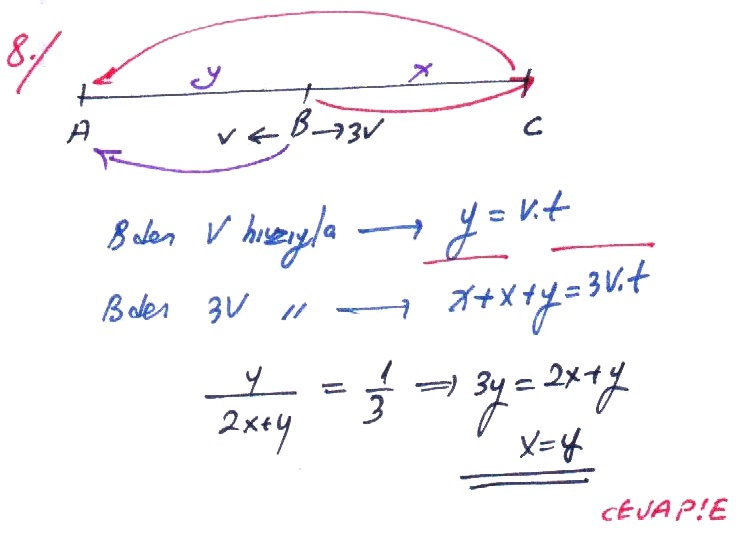 8./
y x
A V ← B → 3V C
B den V hızıyla → y = V.t
B den 3V " → x+x+y = 3V.t
y/(2x+y) = 1/3 ⇒ 3y = 2x+y
x=y
CEVAP!E